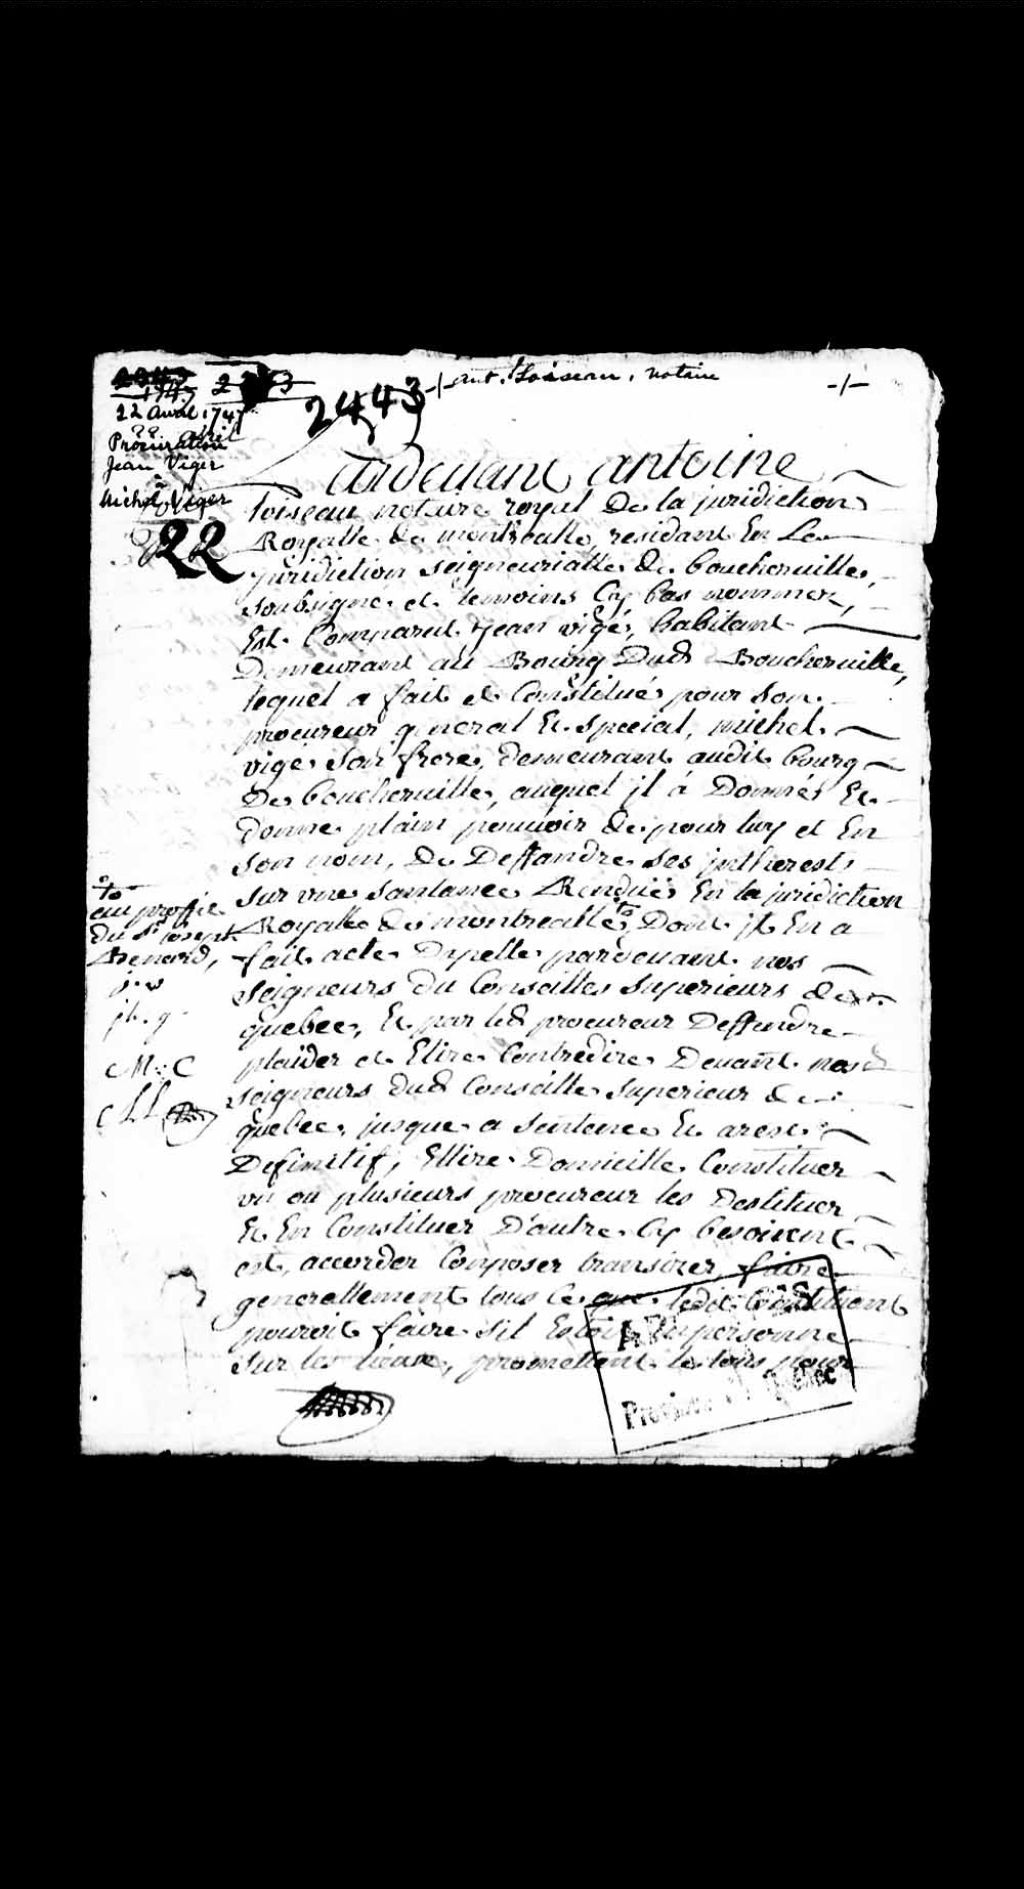 2443
ant. Loiseau, notaire
22 Avril 1747
Procuration
Jean Viger
à
Michel Viger
22
Pardevant antoine
loiseau notaire royal De la juridiction
Royalle de montrealle, residant En La
juridiction seigneurialle de boucherville,
soubsigné et temoins Cy bas nommez,
Est Comparut jean vigé, habitant
Demeurant au Bourg Dud Boucherville,
lequel a fait et Constitué pour son
procureur general Et special, michel
vigé son frere, demeurant audit bourg
De boucherville, auquel jl á Donnés Et
donne plain pouvoir de pour luy et En
son nom, De Deffandre ses jntherests
sur vne santance Renduë En la juridiction
Royalle de montrealle, Dont jl En a
fait acte Dapelle pardevant nos
seigneurs du Conseilles superieurs de
quebec, Et par led procureur Deffendre
plaider et Elire Contredire Devant nosd
seigneurs dud Conseille superieur de
quebec, jusque a sentence Et arest
Definitif, Ellire Domicille Constituer
vn ou plusieurs procureur les Destituer
Et En Constituer D'autre Cy besoint
est, accorder Composer transiger faire
generallement tous ce que ledit Constituant
pouroit faire sil Estoit En personne
sur les lieux, promettant le tous pour
au proffit
du Sr joseph
Benard,
j. v
jh. g
M: C
LL
Province Québec